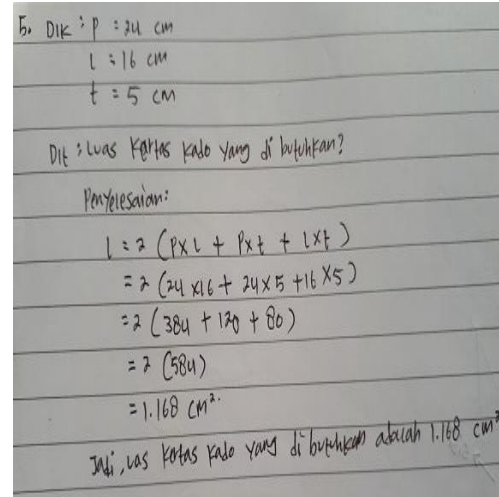 5. Dik : P = 24 cm
l = 16 cm
t = 5 cm
Dit : Luas kertas kado yang di butuhkan?
Penyelesaian:
L = 2 (P×l + P×t + l×t)
= 2 (24×16 + 24×5 + 16×5)
= 2 (384 + 120 + 80)
= 2 (584)
= 1.168 cm².
Jadi, uas kertas kado yang di butuhkan adalah 1.168 cm²